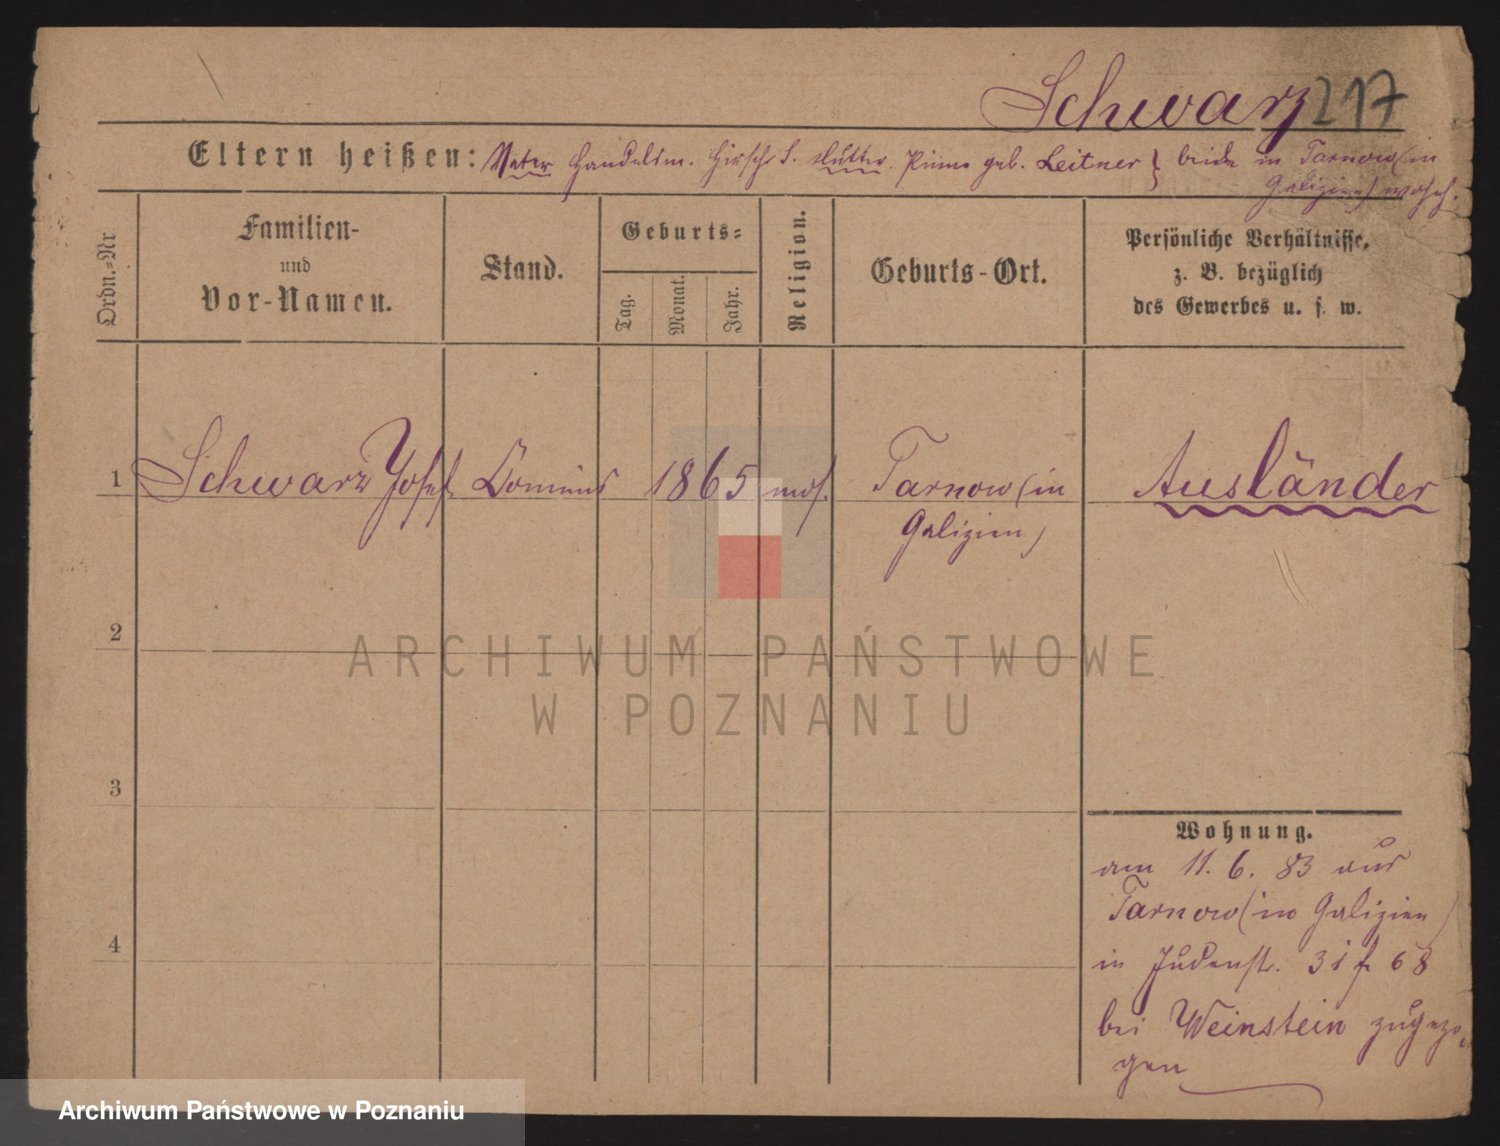 Schwarz 217
Eltern heißen: Vater Handelsm. Hirsch S. Mutter geb. Leitner } beide in Tarnow (in
Galizien) wohh.
Ordn.-Nr
Familien-
und
Vor-Namen.
Stand.
Geburts-
Tag.
Monat.
Jahr.
Religion.
Geburts-Ort.
Persönliche Verhältnisse,
z. B. bezüglich
des Gewerbes u. s. w.
1 Schwarz Josef Commis 1865 mos. Tarnow (in Ausländer
Galizien)
2
3
4
Wohnung.
am 11. 6. 83 aus
Tarnow (in Galizien)
in Judenstr. 31 f 68
bei Weinstein zugezo-
gen
ARCHIWUM PAŃSTWOWE
W POZNANIU
Archiwum Państwowe w Poznaniu